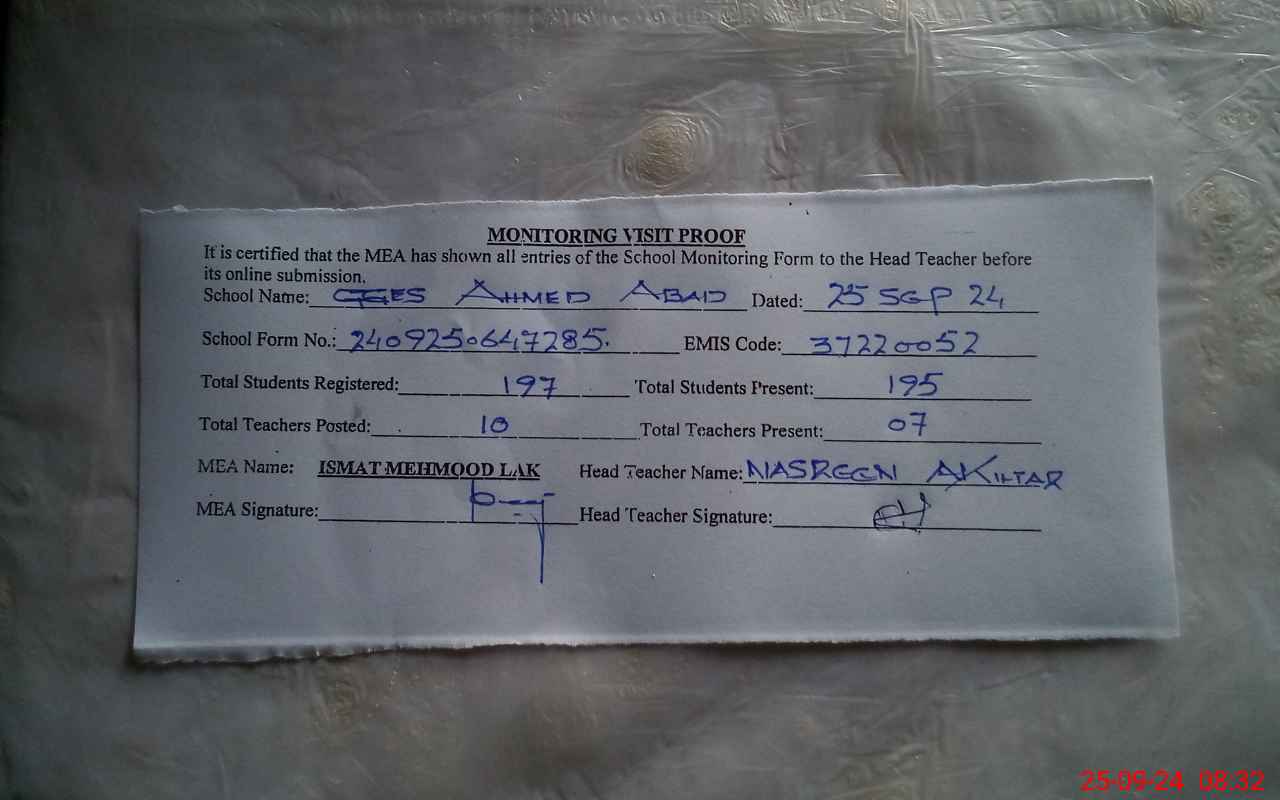 MONITORING VISIT PROOF
It is certified that the MEA has shown all entries of the School Monitoring Form to the Head Teacher before
its online submission.
School Name: GGES AHMED ABAD Dated: 25 SEP 24
School Form No.: 2409250647285. EMIS Code: 37220052
Total Students Registered: 197 Total Students Present: 195
Total Teachers Posted: 10 Total Teachers Present: 07
MEA Name: ISMAT MEHMOOD LAK Head Teacher Name: NASREEN AKHTAR
MEA Signature: Head Teacher Signature:
25-09-24 08:32